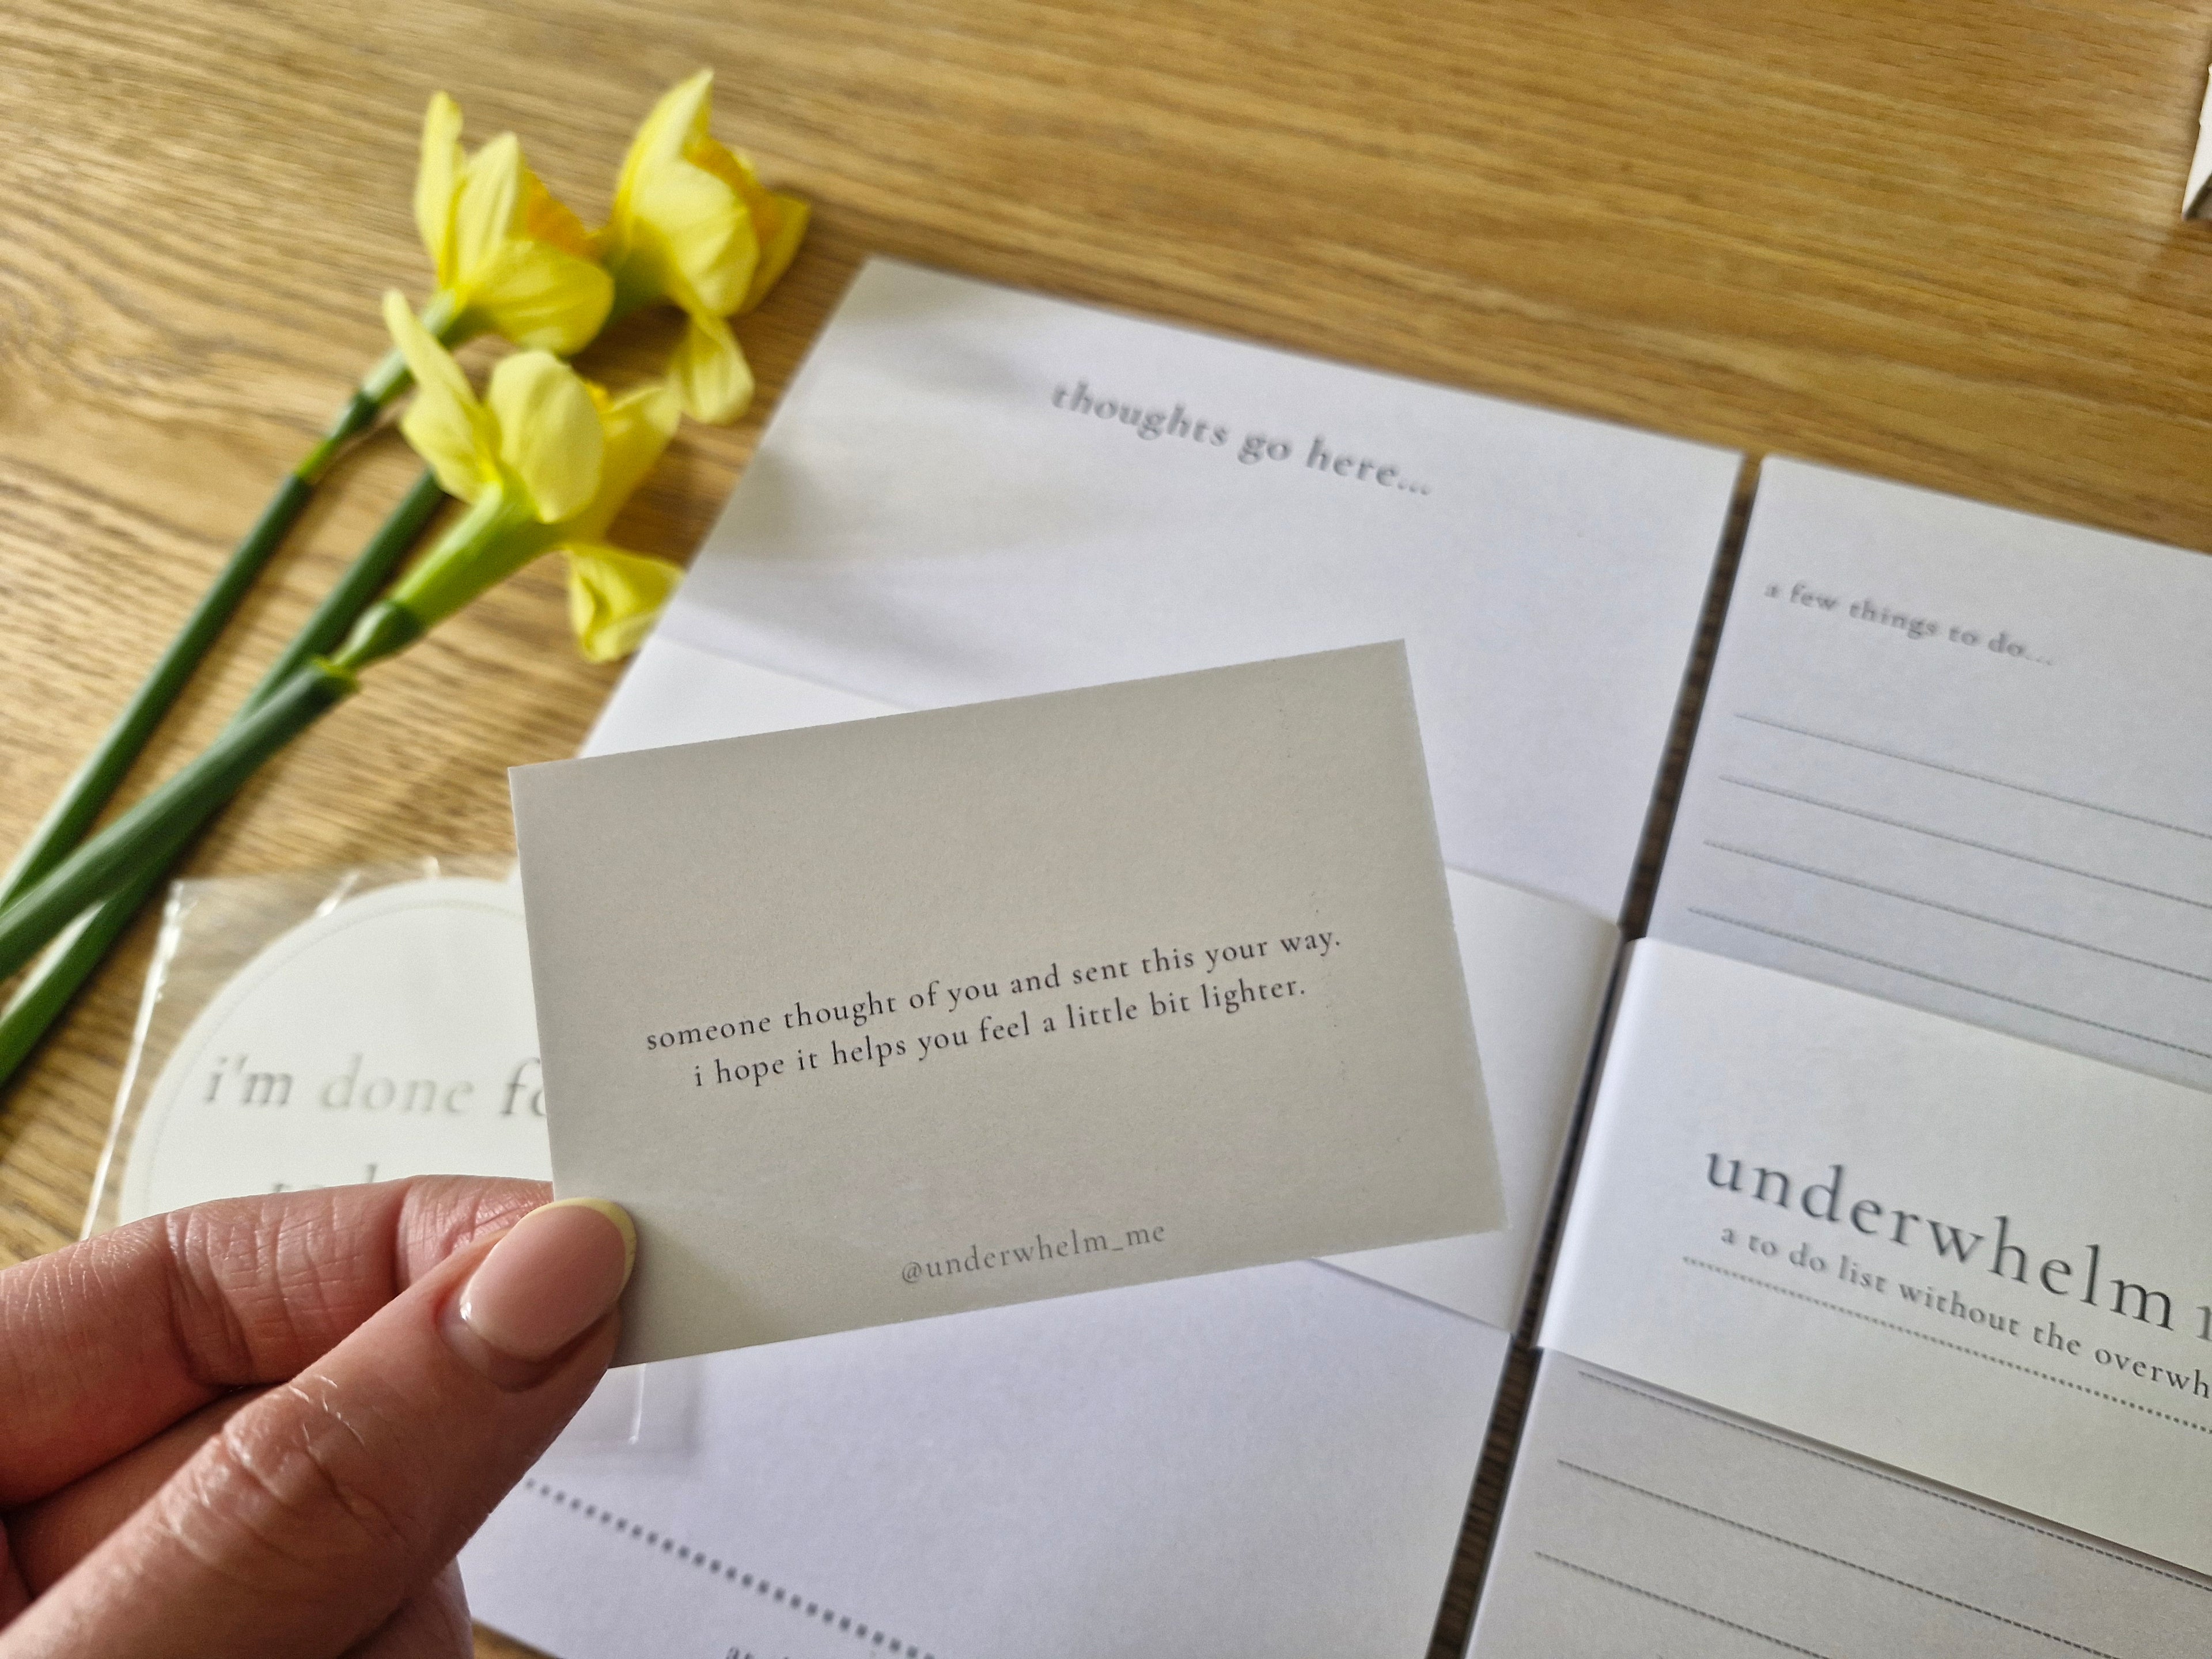 thoughts go here...
a few things to do...
someone thought of you and sent this your way.
i hope it helps you feel a little bit lighter.
@underwhelm_me
i'm done
underwhelm
a to do list without the